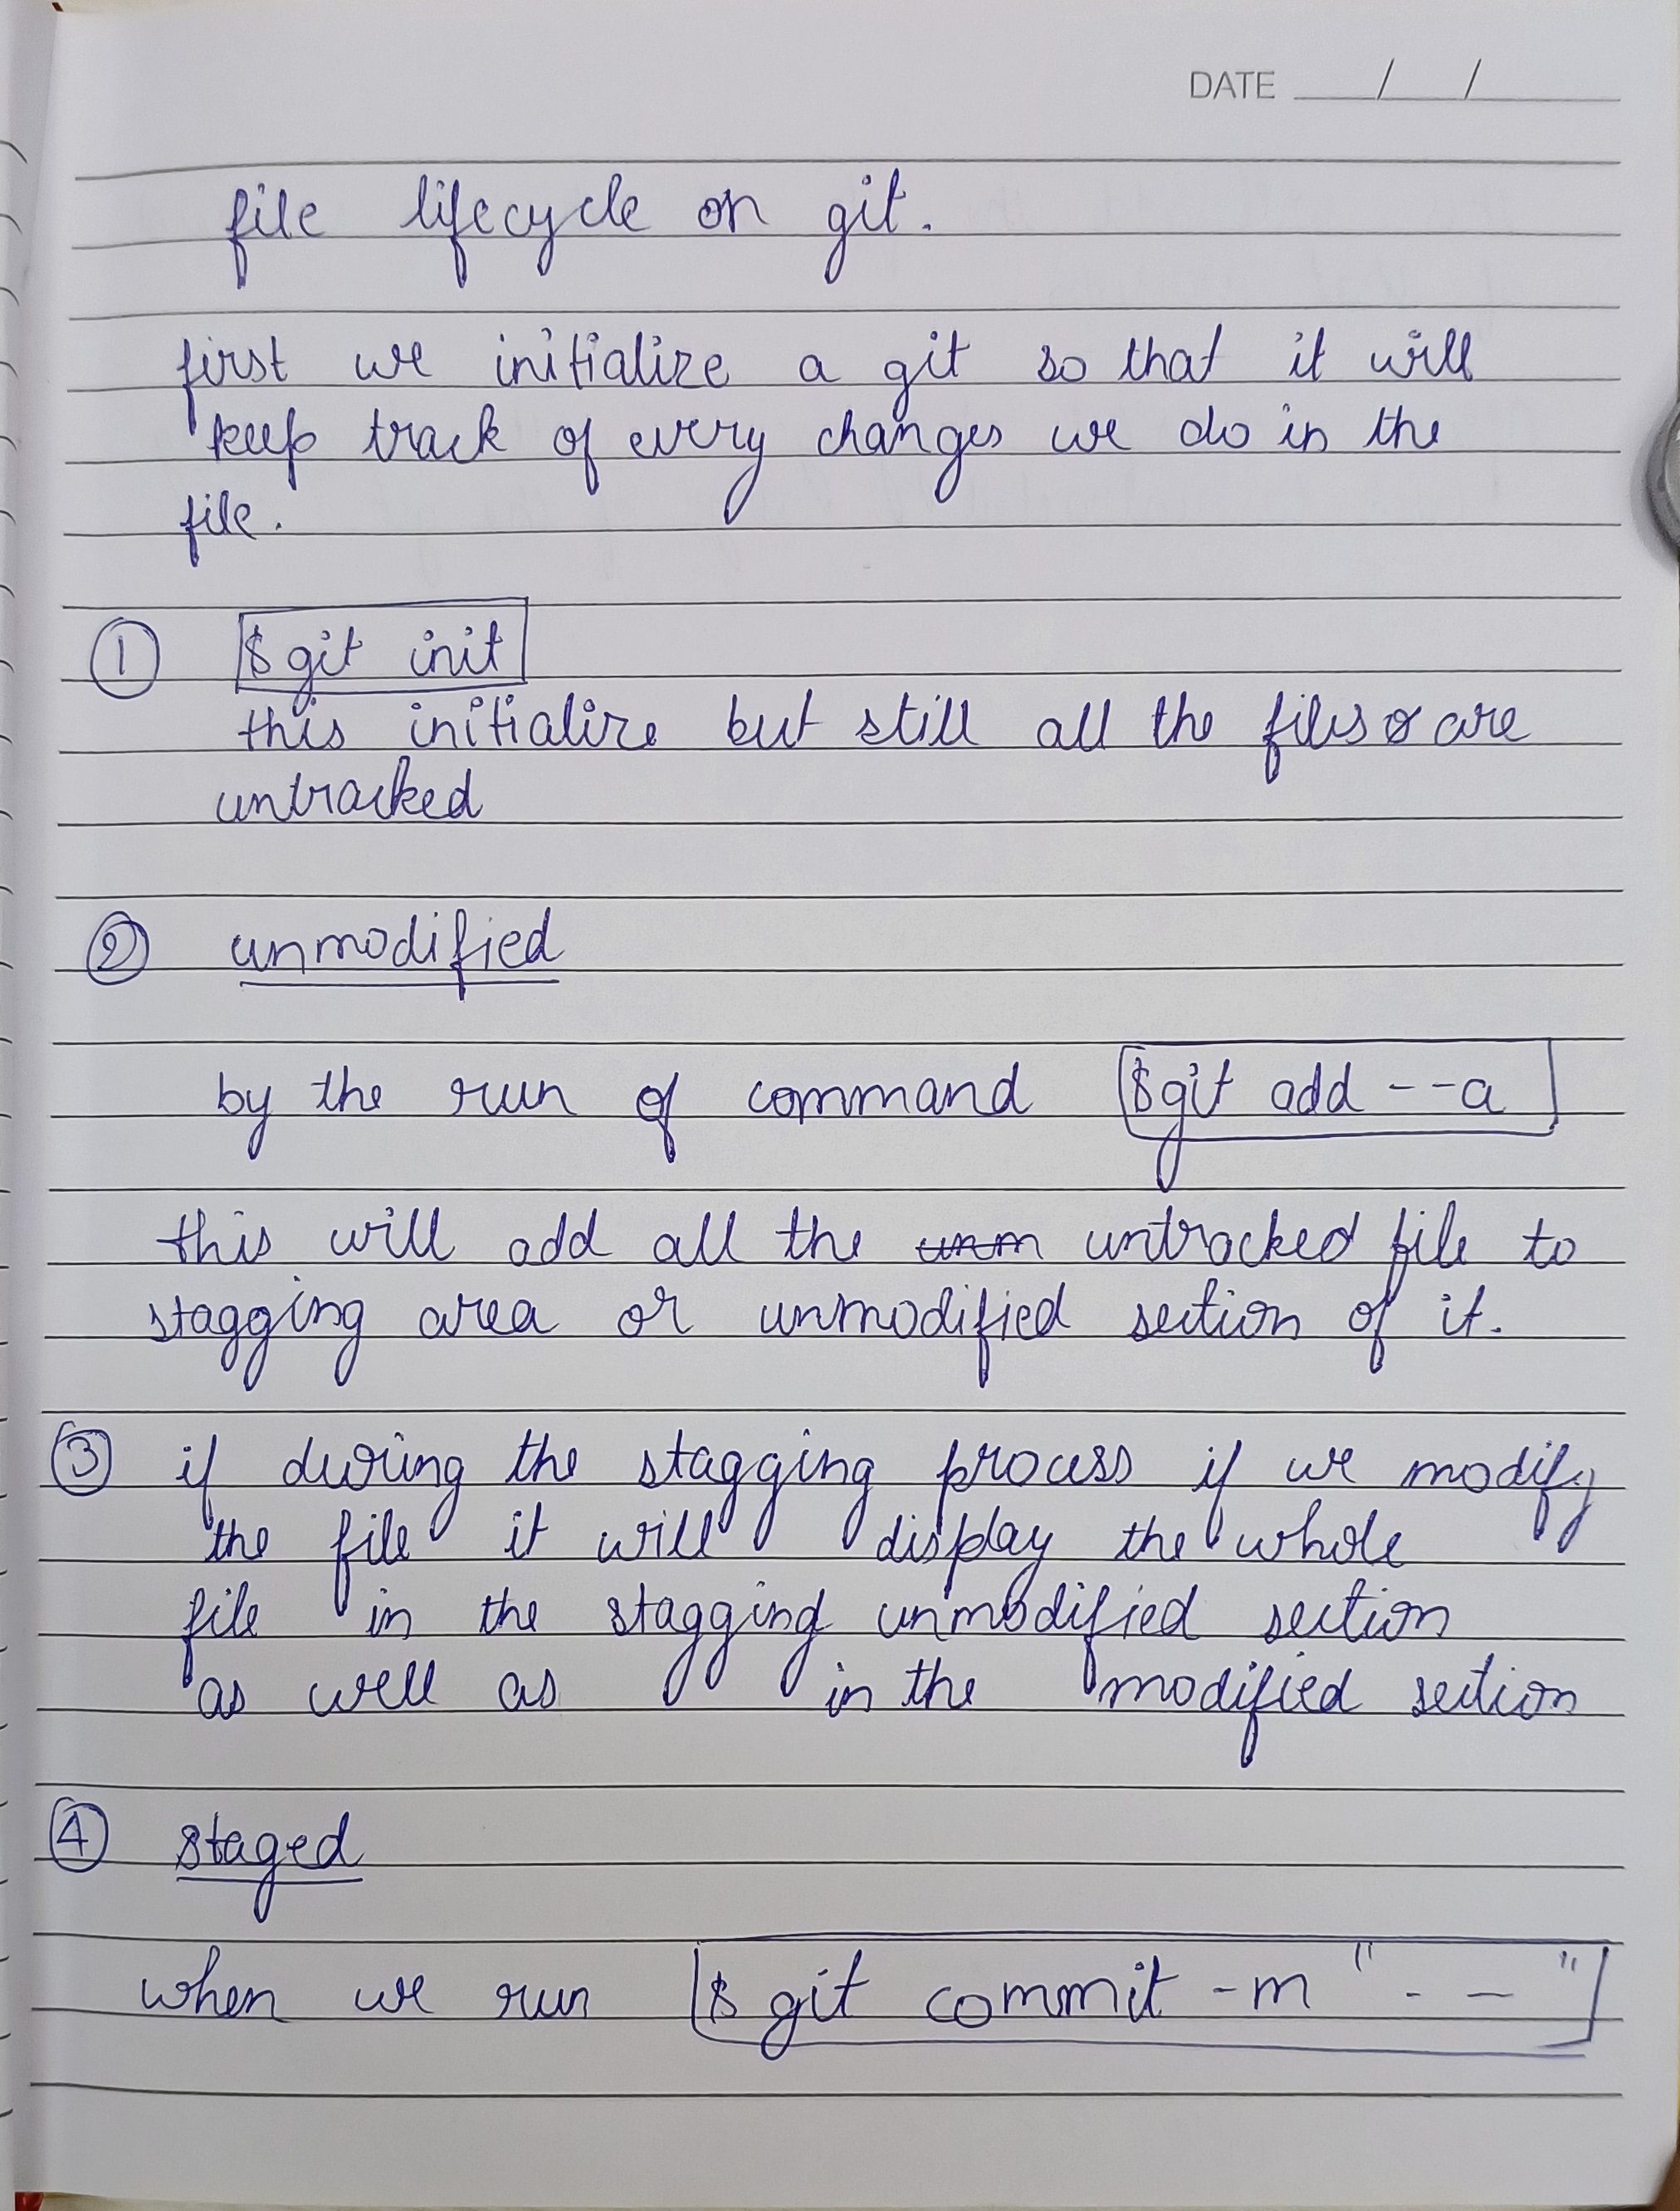 DATE __/__/__
file lifecycle on git.
first we initialize a git so that it will
keep track of every changes we do in the
file.
① $ git init
this initialize but still all the files are
untracked
② unmodified
by the run of command $git add --a
this will add all the unm untracked file to
stagging area or unmodified section of it.
③ if during the stagging process if we modify
the file it will display the whole
file in the stagging unmodified section
as well as in the modified section
④ staged
when we run $ git commit -m " - - "